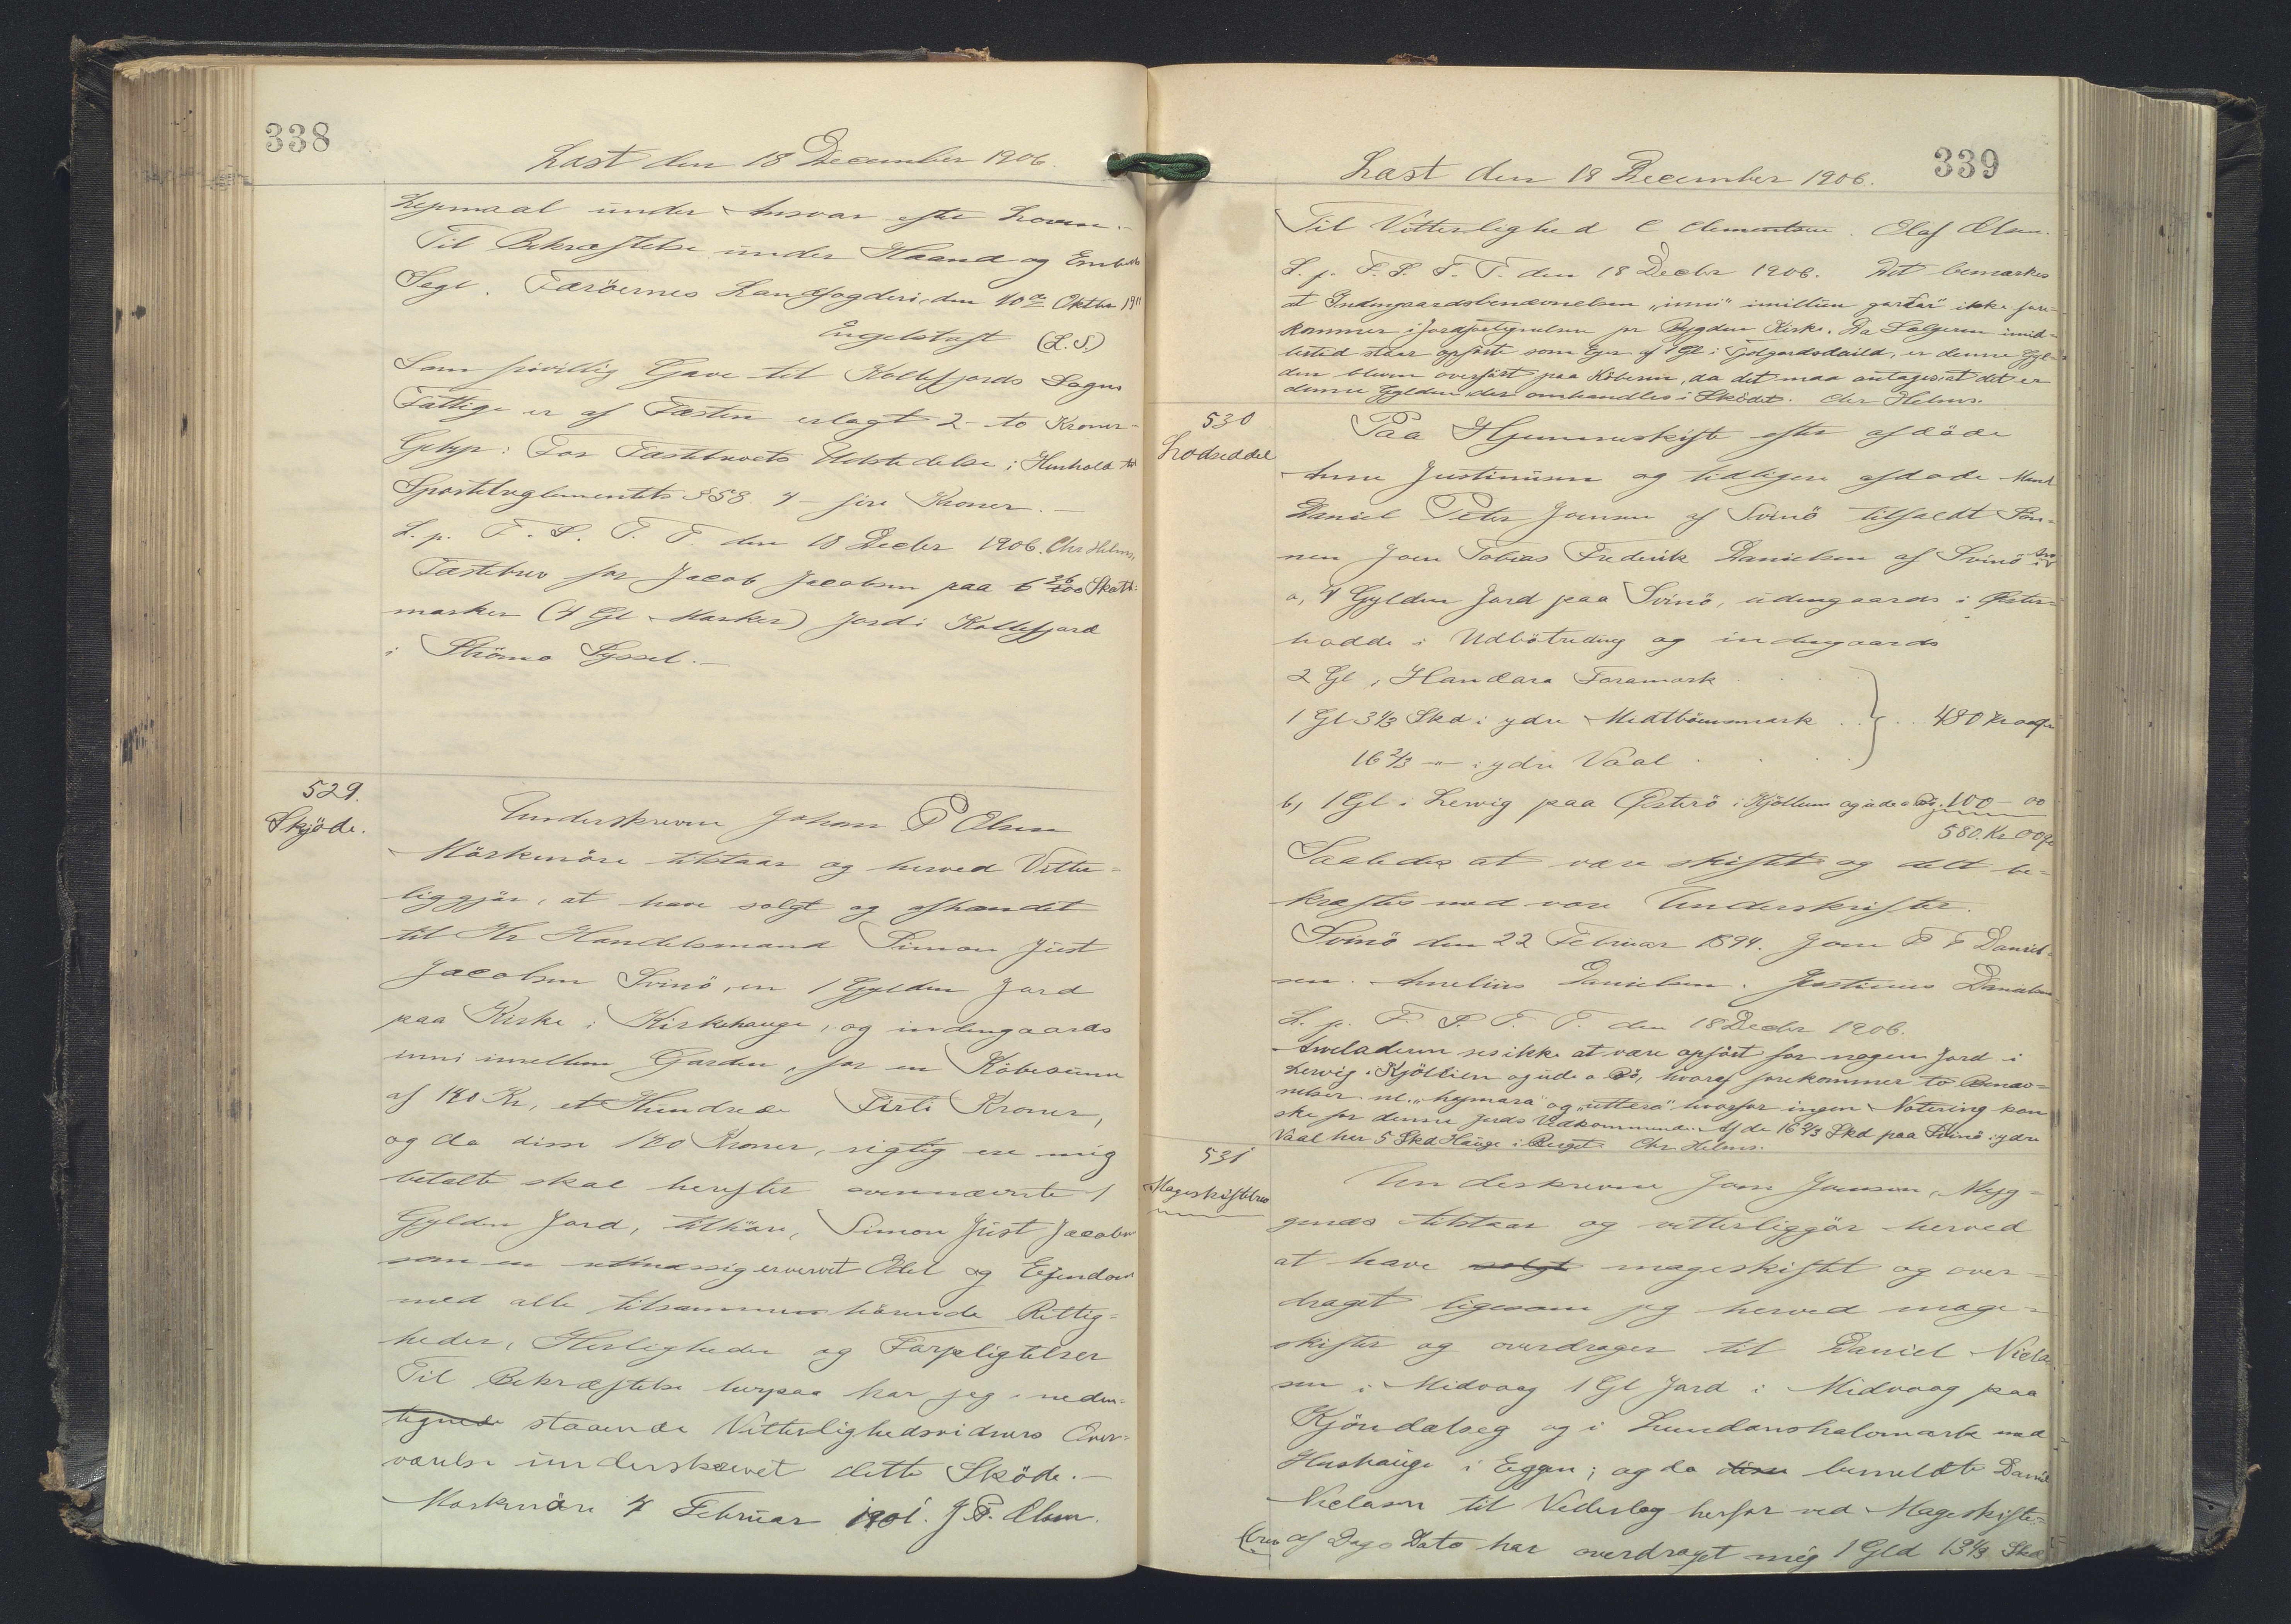 338
Læst den 18 December 1906.
Lejemaal under Ansvar efter Loven.-
Til Bekræftelse under Haand og Embeds
Segl. Færöernes Landfogderi, den 10de Oktbr 19
Engelstoft (L.S.)
Som frivillig Gave til Kollefjords Sogns
Fattige er af Fæsten erlagt 2 - to Kroner -
Gebyr: For Fæstebrevets Udstedelse i Henhold til
Sportelreglementets §58. 4 - fire Kroner.-
L. p. F. S. T. T. den 18 Decbr 1906. Chr Helms.
Fæstebrev for Jacob Jacobsen paa 6 36/100 Skatte-
marker (4 Gl Marker) Jord i Kollefjord
i Strömö Syssel.-
529.
Skjöde.
Underskrevne Johan P Olsen
Mörkenöre tilstaar og herved Vitter=
liggjör, at have solgt og afhændet
til Hr Handelsmand Simon Just
Jacobsen Svinö, en 1 Gylden Jord
paa Kirke i Kirkehauge, og indengaards
inni imellum Garder, for en Köbesum
af 180 Kr, et Hundrede Firti Kroner,
og da disse 180 Kroner, rigtig ere mig
betalte skal herefter ovennævnte 1
Gylden Jord, tilhöre, Simon Just Jacobsen
som en retmæssig erværvet Odel og Ejendom
med alle tilsammen hörende Rettig=
heder, Herligheder og Forpligtelser
Til Bekræftelse herpaa har jeg i neden=
tegnede staaende Vitterlighedsvidners Over=
værelse underskrevet dette Sköde.-
Morkenöre 4 Februar 1901. J. P. Olsen.
339
Læst den 18 December 1906.
Til Vitterlighed C Clementsen. Olaf Olsen.
L. p. F. S. T. T. den 18 Decbr 1906. Det bemærkes
at Indengaardsbenævnelsen "inni" imillun gardar" ikke fore-
kommer i Jordfortegnelsen for Bygden Kirke. Da Sælgeren imid-
lertid staar opfört som Ejer af 1 Gl i Tjolgardsdeild, er denne Gyl-
den bleven overfört paa Köberen, da det maa antages at det er
denne Gylden, der omhandles i Sködet. Chr Helms.
530
Lodseddel
Paa Hjemmeskifte efter afdöde
Anne Justinusen og tidligere afdöde Mand
Daniel Peter Joensen af Svinö tilfaldt Sön-
nen Joen Tobias Frederik Danielsen af Svinö
a, 4 Gylden Jord paa Svinö, udengaards i Öster-
hadde i Udbötreding og indengaards
2 Gl i Handara Foramork . .
1 Gl 3 1/3 Skd i ydre Medtbömsmark . . } . . 480 Kr 00 Øre
16 2/3 -"- i ydre Vaal . . .
b, 1 Gl i Lervig paa Österö i Kjöllum og ude a Bö . 100 - 00
580 Kr 00 Øre
Saaledes at være skiftet og delt be-
kræftes med vore Underskrifter.
Svinö den 22 Februar 1894. Joen T F Daniel-
sen. Anelius Danielsen. Justinus Danielsen
L. p. F. S. T. T. den 18 Decbr 1906.
Arveladeren ses ikke at være opfört for nogen Jord i
Lervig i Kjöllien og ude a Bö, hvoraf forekommer to Benæv-
nelser nl. "hejmara" og "uttara" hvorfor ingen Notering kan
ske for denne Jords Vedkommende. Af de 16 2/3 Skd paa Svinö i ydre
Vaal her 5 Skd Hauge i Breget. Chr Helms.
531
Mageskiftebrev
Underskrevne Joen Joensen, Myg-
genæs tilstaar og vitterliggör herved
at have solgt mageskiftet og over-
draget ligesom jeg herved mage-
skifter og overdrager til Daniel Niclas-
sen i Midvaag 1 Gl Jord i Midvaag paa
Kjöndalseg og i Lundanshalsmark med
Hushauge i Eggen; og da disse bemeldte Daniel
Niclasen til Vederlag herfor ved Mageskifte-
brev af Dags Dato har overdraget mig 1 Gld 13 1/3 Skd